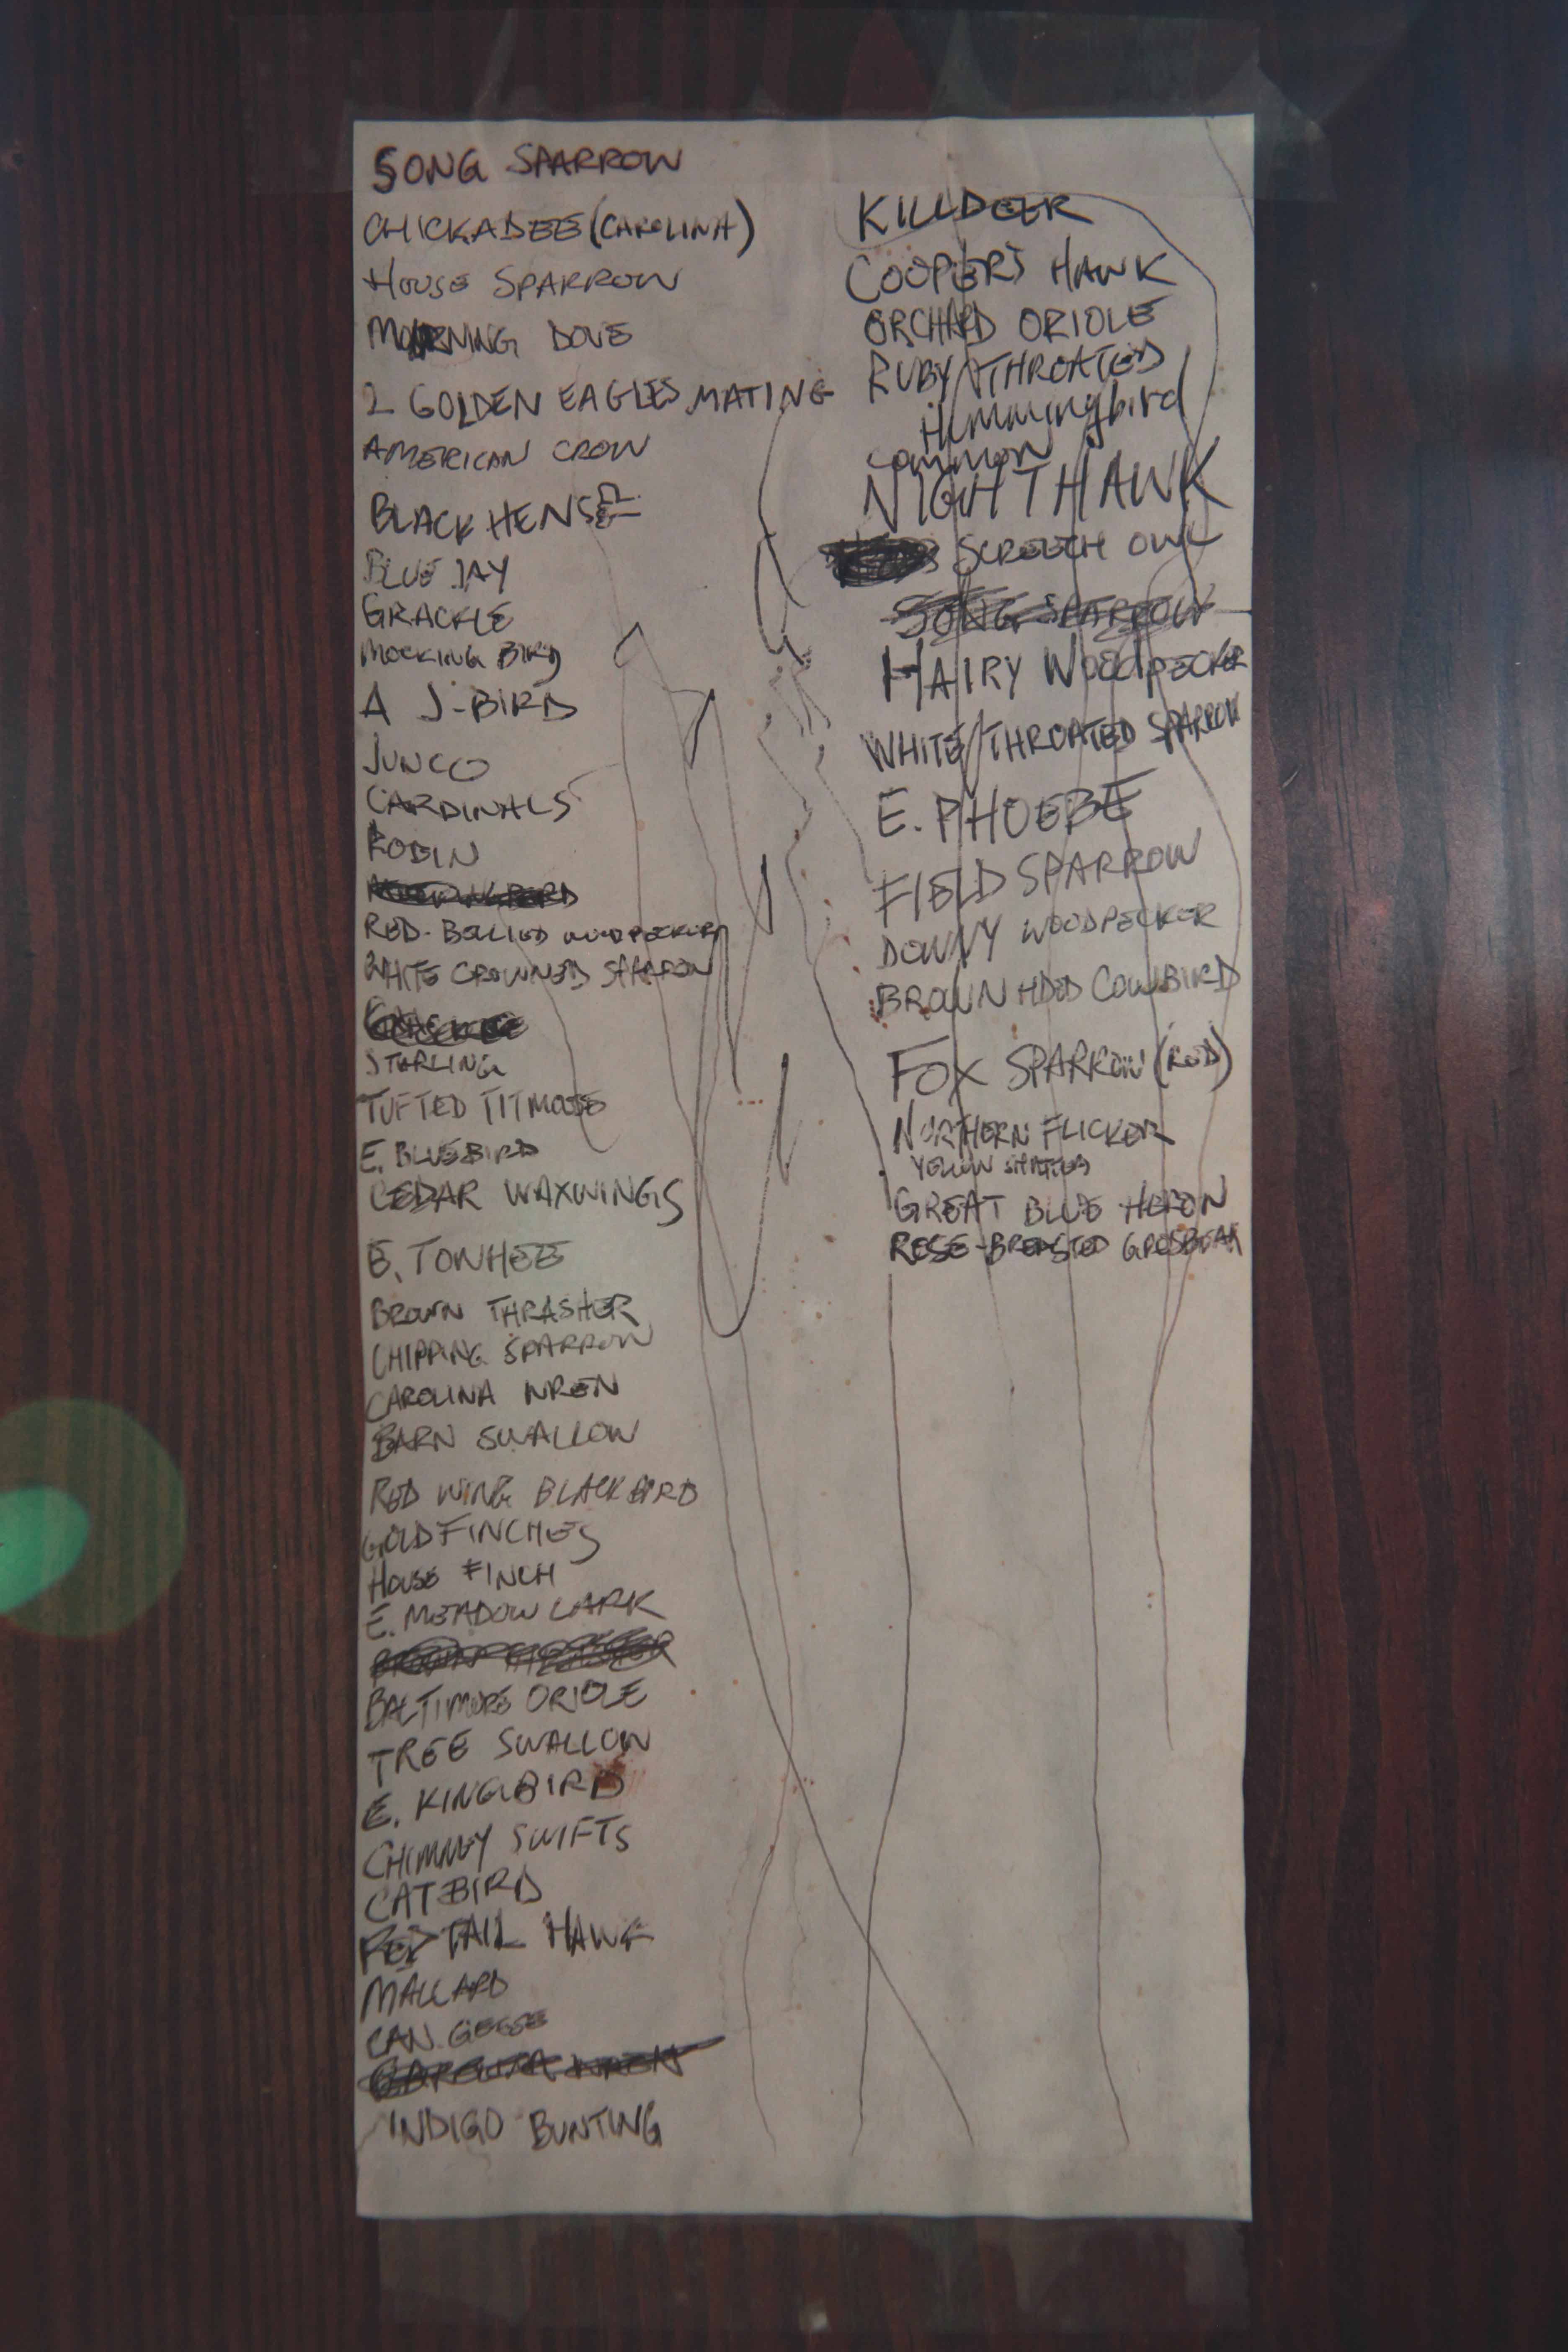 SONG SPARROW
CHICKADEE (CAROLINA)
HOUSE SPARROW
MOURNING DOVE
2 GOLDEN EAGLES MATING
AMERICAN CROW
BLACK HENS
BLUE JAY
GRACKLE
MOCKING BIRD
A J-BIRD
JUNCO
CARDINALS
ROBIN
RED-BELLIED WOODPECKER
WHITE CROWNED SPARROW
STARLING
TUFTED TITMOUSE
E. BLUEBIRD
CEDAR WAXWINGS
E. TOWHEE
BROWN THRASHER
CHIPPING SPARROW
CAROLINA WREN
BARN SWALLOW
RED WING BLACKBIRD
GOLDFINCHES
HOUSE FINCH
E. MEADOW LARK
BROWN THRASHER
BALTIMORE ORIOLE
TREE SWALLOW
E. KINGBIRD
CHIMNEY SWIFTS
CATBIRD
RED TAIL HAWK
MALLARD
CAN. GEESE
CAROLINA WREN
INDIGO BUNTING
KILLDEER
COOPER'S HAWK
ORCHARD ORIOLE
RUBY THROATED
Hummingbird
common
NIGHTHAWK
SCREECH OWL
SONG SPARROW
HAIRY WOODPECKER
WHITE THROATED SPARROW
E. PHOEBE
FIELD SPARROW
DOWNY WOODPECKER
BROWN HDED COWBIRD
FOX SPARROW (RED)
NORTHERN FLICKER
YELLOW SHAFTED
GREAT BLUE HERON
ROSE-BREASTED GROSBEAK